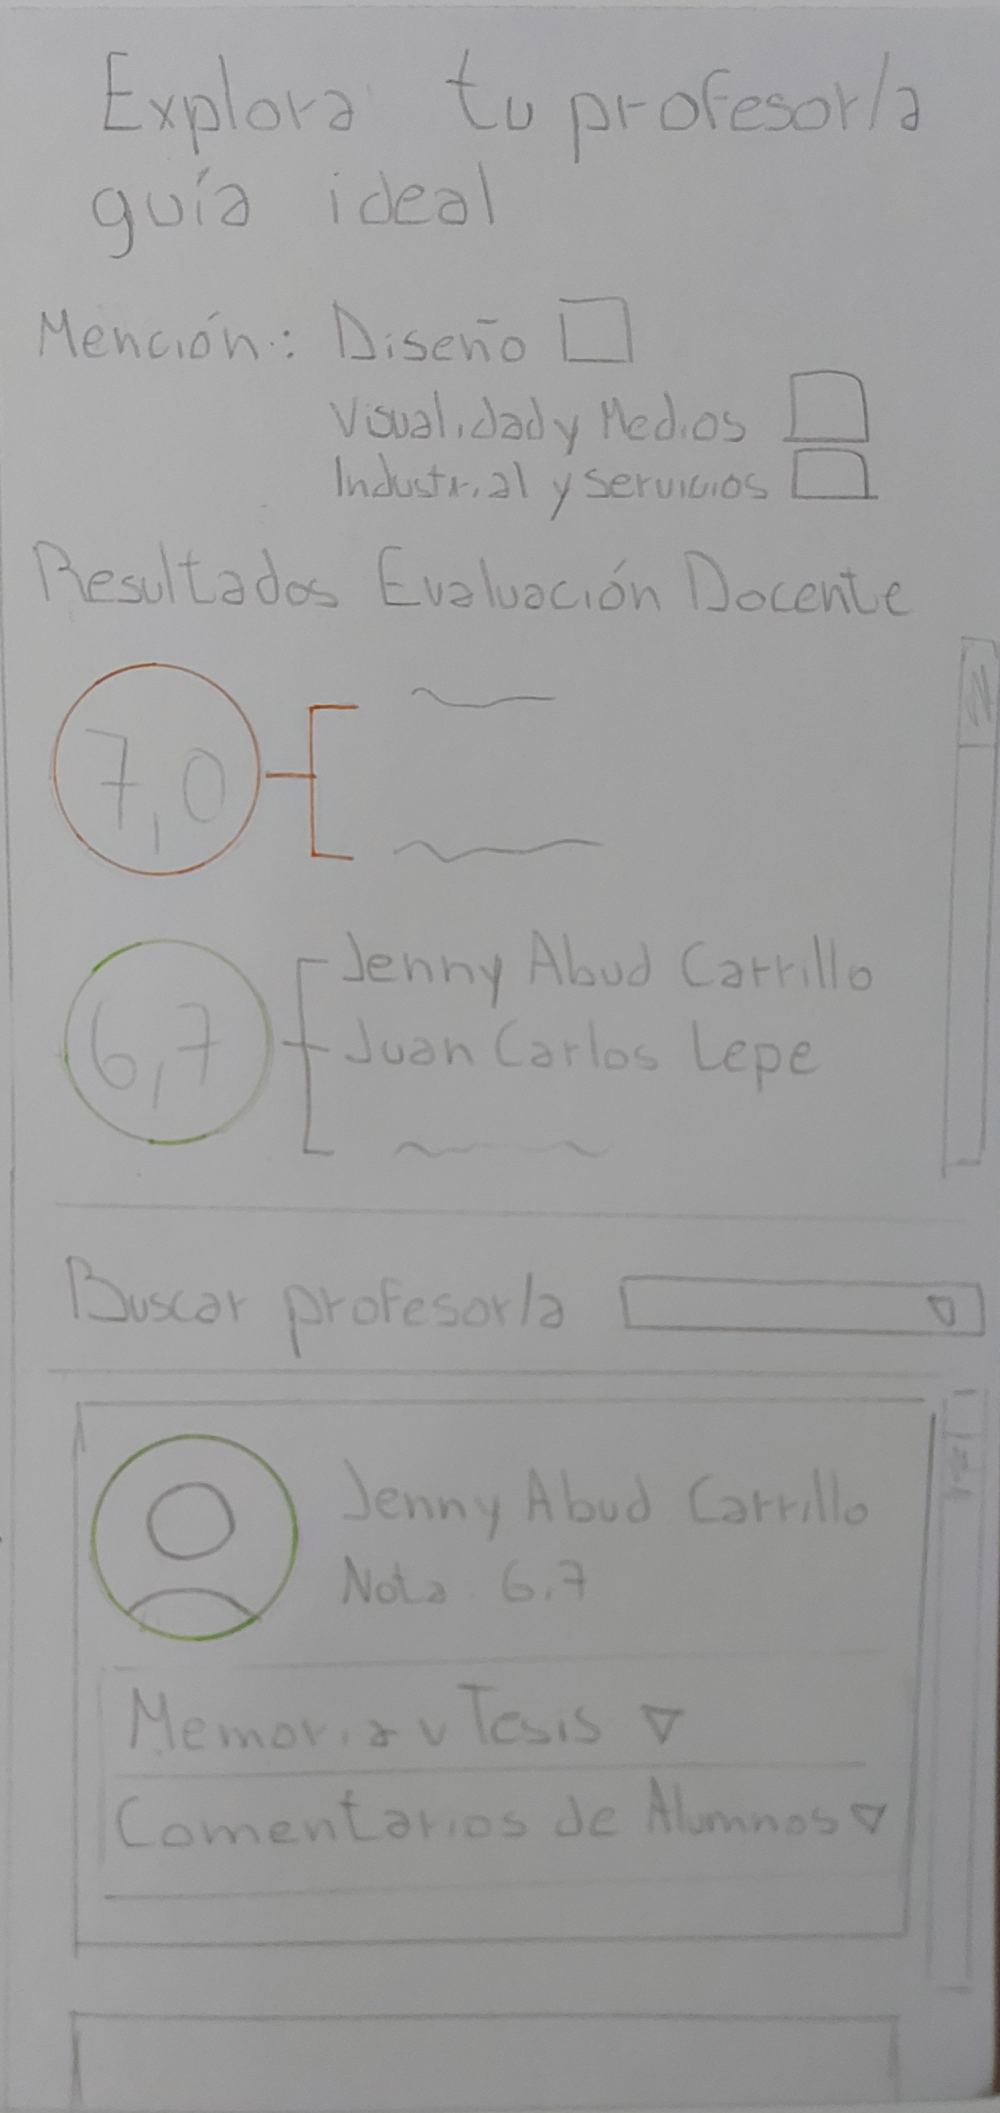 Explora tu profesor/a
guía ideal
Mención: Diseño
Visualidad y Medios
Industrial y servicios
Resultados Evaluación Docente
7,0
6,7
Jenny Abud Carrillo
Juan Carlos Lepe
Buscar profesor/a
Jenny Abud Carrillo
Nota 6.7
Memoria y Tesis
Comentarios de Alumnos